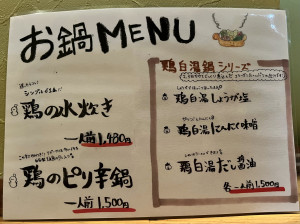 お鍋MENU
鶏の水炊き
一人前 1,480円
鶏のピリ辛鍋
一人前 1,500円
鶏白湯鍋シリーズ
鶏白湯しょうが塩
鶏白湯にんにく味噌
鶏白湯だし醤油
各一人前 1,500円